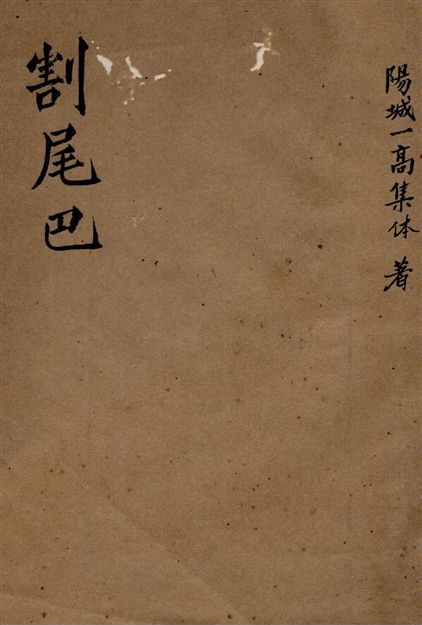 陽城一高集体 著
割尾巴